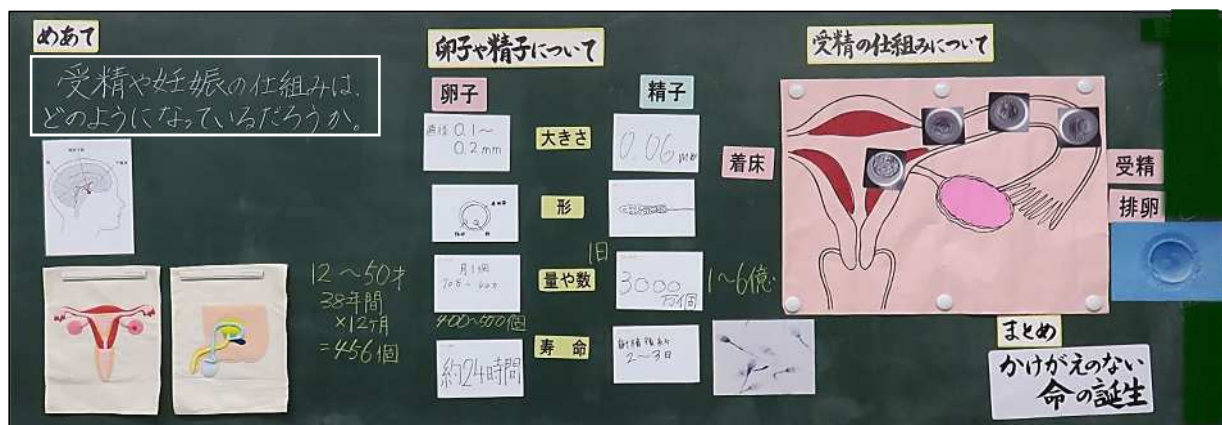 めあて
受精や妊娠の仕組みは、
どのようになっているだろうか。
12~50才
38年間
×12ヶ月
=456個
卵子や精子について
卵子
精子
直径0.1~
0.2mm
大きさ
0.06mm
形
月1個
量や数
1日
3000
万個
1~6億
400~500個
約24時間
寿命
射精後約
2~3日
受精の仕組みについて
着床
受精
排卵
まとめ
かけがえのない
命の誕生